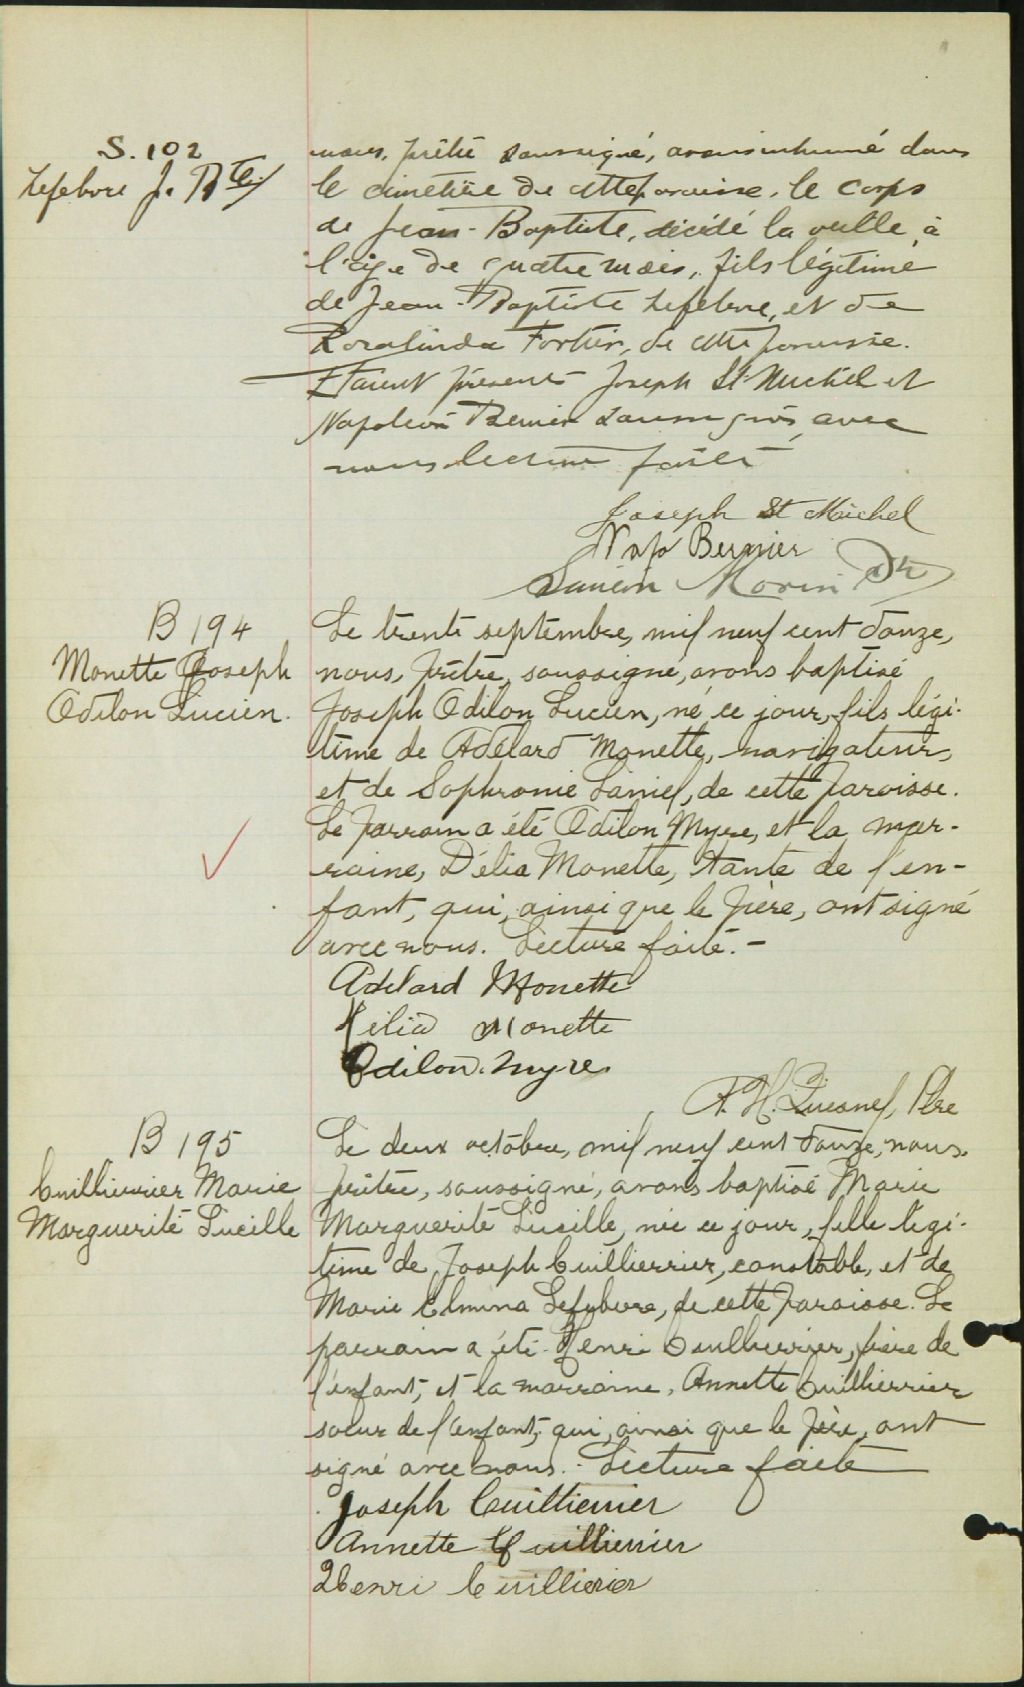 S. 102
Lefebvre J. Bte
nous, prêtre soussigné, avons inhumé dans
le cimetière de cette paroisse, le corps
de Jean-Baptiste, décédé la veille, à
l'âge de quatre mois, fils légitime
de Jean-Baptiste Lefebvre, et de
Rosalinda Fortier, de cette paroisse.
Etaient présents Joseph St Michel et
Napoleon Bernier soussignés avec
nous lecture faite
Joseph St Michel
Nap Bernier
Lucien Morin Ptr
B 194
Monette Joseph
Odilon Lucien.
Le trente septembre, mil neuf cent douze,
nous, prêtre, soussigné, avons baptisé
Joseph Odilon Lucien, né ce jour, fils légi-
time de Adélard Monette, navigateur,
et de Sophronie Daniel, de cette paroisse.
Le parrain a été Odilon Myre, et la mar-
raine, Délia Monette, tante de l'en-
fant, qui, ainsi que le père, ont signé
avec nous. Lecture faite. -
Adélard Monette
Délia Monette
Odilon Myre
A. H. Quesnel, Ptre
B 195
Cuillierrier Marie
Marguerite Lucille
Le deux octobre, mil neuf cent douze, nous,
prêtre, soussigné, avons baptisé Marie
Marguerite Lucille, née ce jour, fille légi-
time de Joseph Cuillierrier, constable, et de
Marie Elmina Lefebvre, de cette paroisse. Le
parrain a été Henri Cuillierrier, frère de
l'enfant, et la marraine, Annette Cuillierrier
soeur de l'enfant, qui, ainsi que le père, ont
signé avec nous. - Lecture faite
Joseph Cuillierrier
Annette Cuillierrier
Henri Cuillierier